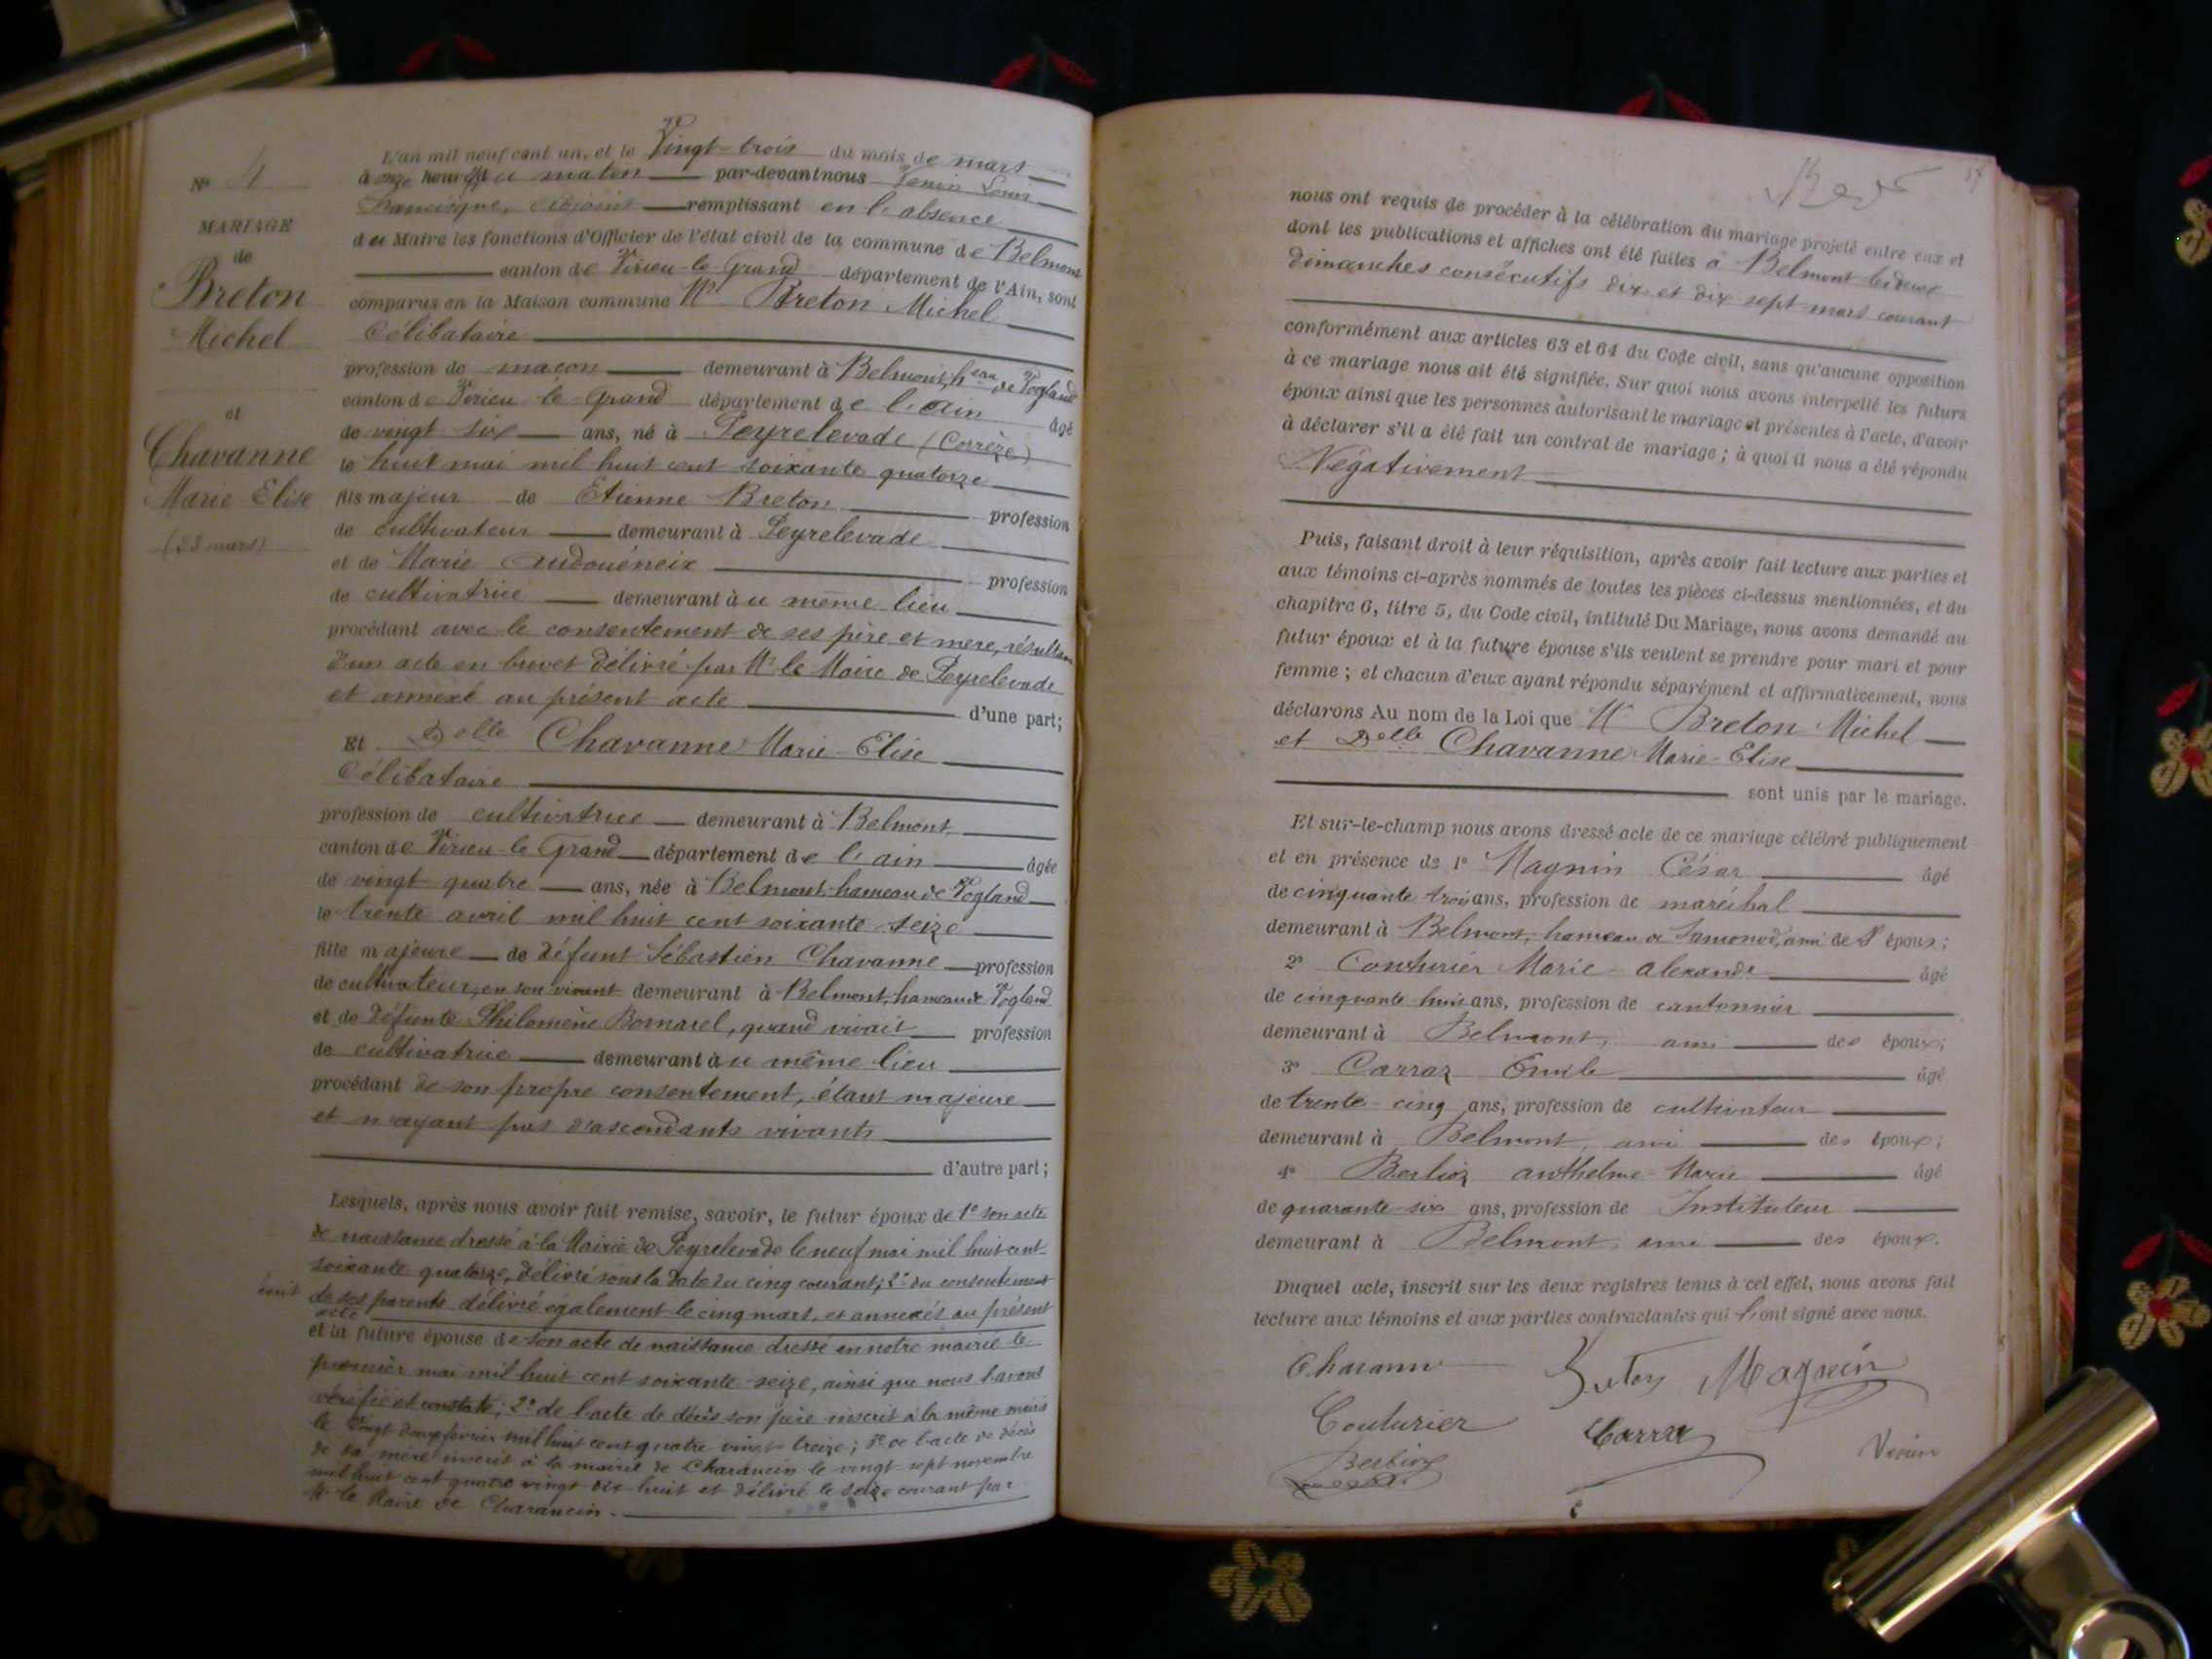 N° 4
MARIAGE
de
Breton
Michel
et
Chavanne
Marie Elise
(23 mars)
L'an mil neuf cent un, et le Vingt-trois du mois de mars
à onze heures du matin par-devant nous Venin Louis
Francisque, adjoint remplissant en l'absence
du Maire les fonctions d'Officier de l'état civil de la commune de Belmont
canton de Virieu-le-Grand département de l'Ain, sont
comparus en la Maison commune Mr Breton Michel
Célibataire
profession de maçon demeurant à Belmont, heau de Vogland
canton de Virieu le Grand département de l'ain âgé
de vingt six ans, né à Peyrelevade (Corrèze)
le huit mai mil huit cent soixante quatorze
fils majeur de Etienne Breton profession
de cultivateur demeurant à Peyrelevade
et de Marie Audouéneix profession
de cultivatrice demeurant au même lieu
procédant avec le consentement de ses père et mère, résultant
d'un acte en brevet délivré par Mr le Maire de Peyrelevade
et annexé au présent acte d'une part;
Et Delle Chavanne Marie-Elise
Célibataire
profession de cultivatrice demeurant à Belmont
canton de Virieu le Grand département de l'ain âgée
de vingt quatre ans, née à Belmont hameau de Vogland
le trente avril mil huit cent soixante seize
fille majeure de défunt Sébastien Chavanne profession
de cultivateur, en son vivant demeurant à Belmont, hameau de Vogland
et de défunte Philomène Bornarel, quand vivait profession
de cultivatrice demeurant au même lieu
procédant de son propre consentement, étant majeure
et n'ayant pas d'ascendants vivants
d'autre part;
Lesquels, après nous avoir fait remise, savoir, le futur époux de 1° son acte
de naissance dressé à la Mairie de Peyrelevade le neuf mai mil huit cent
soixante quatorze, délivré sous la date du cinq courant; 2° du consentement
de ses parents délivré également le cinq mars, et annexés au présent
acte
et la future épouse de son acte de naissance dressé en notre mairie le
premier mai mil huit cent soixante-seize, ainsi que nous l'avons
vérifié et constaté; 2° de l'acte de décès son père inscrit à la même mairie
le vingt deux février mil huit cent quatre vingt treize; 3° de l'acte de décès
de sa mère inscrit à la mairie de Charancin le vingt-sept novembre
mil huit cent quatre vingt dix huit et délivré le seize courant par
Mr le Maire de Charancin.
57
nous ont requis de procéder à la célébration du mariage projeté entre eux et
dont les publications et affiches ont été faites à Belmont les deux
dimanches consécutifs dix et dix-sept mars courant
conformément aux articles 63 et 64 du Code civil, sans qu'aucune opposition
à ce mariage nous ait été signifiée. Sur quoi nous avons interpellé les futurs
époux ainsi que les personnes autorisant le mariage et présentes à l'acte, d'avoir
à déclarer s'il a été fait un contrat de mariage; à quoi il nous a été répondu
Négativement
Puis, faisant droit à leur réquisition, après avoir fait lecture aux parties et
aux témoins ci-après nommés de toutes les pièces ci-dessus mentionnées, et du
chapitre 6, titre 5, du Code civil, intitulé Du Mariage, nous avons demandé au
futur époux et à la future épouse s'ils veulent se prendre pour mari et pour
femme; et chacun d'eux ayant répondu séparément et affirmativement, nous
déclarons Au nom de la Loi que Mr Breton Michel
et Delle Chavanne Marie-Elise
sont unis par le mariage.
Et sur-le-champ nous avons dressé acte de ce mariage célébré publiquement
et en présence de 1° Magnin César âgé
de cinquante trois ans, profession de maréchal
demeurant à Belmont, hameau de Samonod, ami de l' époux;
2° Couturier Marie-alexandre âgé
de cinquante huit ans, profession de cantonnier
demeurant à Belmont, ami des époux;
3° Carraz Emile âgé
de trente-cinq ans, profession de cultivateur
demeurant à Belmont, ami des époux;
4° Berlioz anthelme-Marie âgé
de quarante-six ans, profession de Instituteur
demeurant à Belmont, ami des époux.
Duquel acte, inscrit sur les deux registres tenus à cet effet, nous avons fait
lecture aux témoins et aux parties contractantes qui l'ont signé avec nous.
Chavanne Breton Magnin
Couturier Carraz Venin
Berlioz